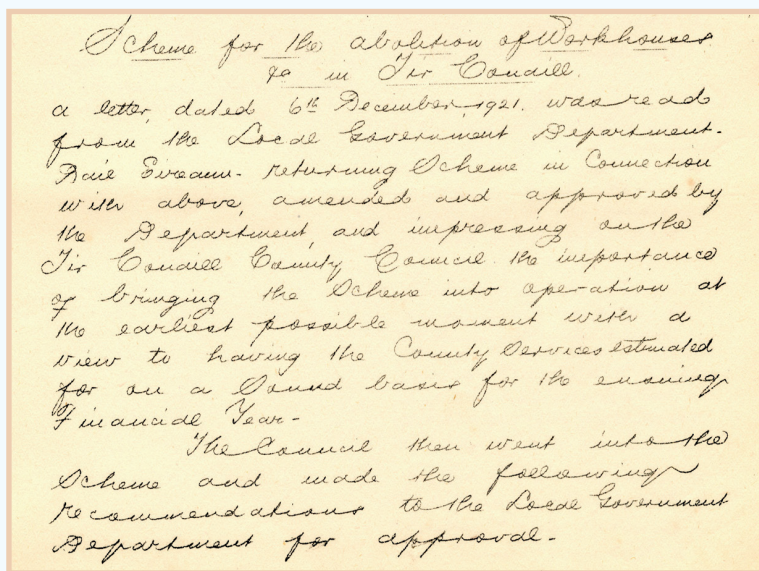 Scheme for the abolition of Workhouses
&c in Tir Conaill.
a letter, dated 6th December, 1921. was read
from the Local Government Department.
Dail Eireann. returning Scheme in Connection
with above, amended and approved by
the Department, and impressing on the
Tir Conaill County Council the importance
of bringing the Scheme into operation at
the earliest possible moment with a
view to having the County Services estimated
for on a Sound basis for the ensuing
Financial Year-
The Council then went into the
Scheme and made the following
recommendations to the Local Government
Department for approval.